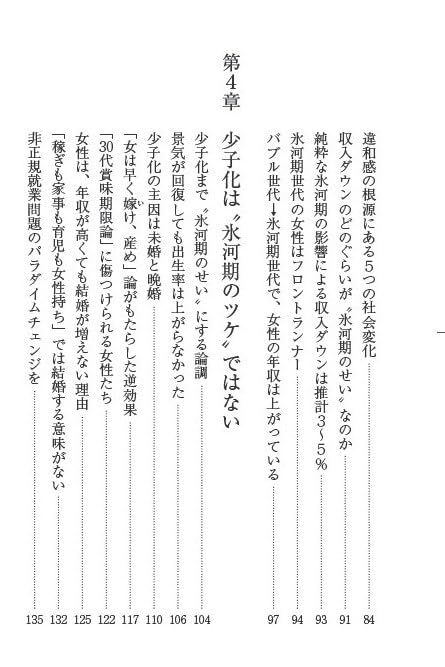 違和感の根源にある5つの社会変化……84
収入ダウンのどのぐらいが〝氷河期のせい〟なのか……91
純粋な氷河期の影響による収入ダウンは推計3〜5%……93
氷河期世代の女性はフロントランナー……94
バブル世代→氷河期世代で、女性の年収は上がっている……97
第4章 少子化は〝氷河期のツケ〟ではない
少子化まで〝氷河期のせい〟にする論調……104
景気が回復しても出生率は上がらなかった……106
少子化の主因は未婚と晩婚……110
「女は早く嫁げ、産め」論がもたらした逆効果……117
「30代賞味期限論」に傷つけられる女性たち……122
女性は、年収が高くても結婚が増えない理由……125
「稼ぎも家事も育児も女性持ち」では結婚する意味がない……132
非正規就業問題のパラダイムチェンジを……135